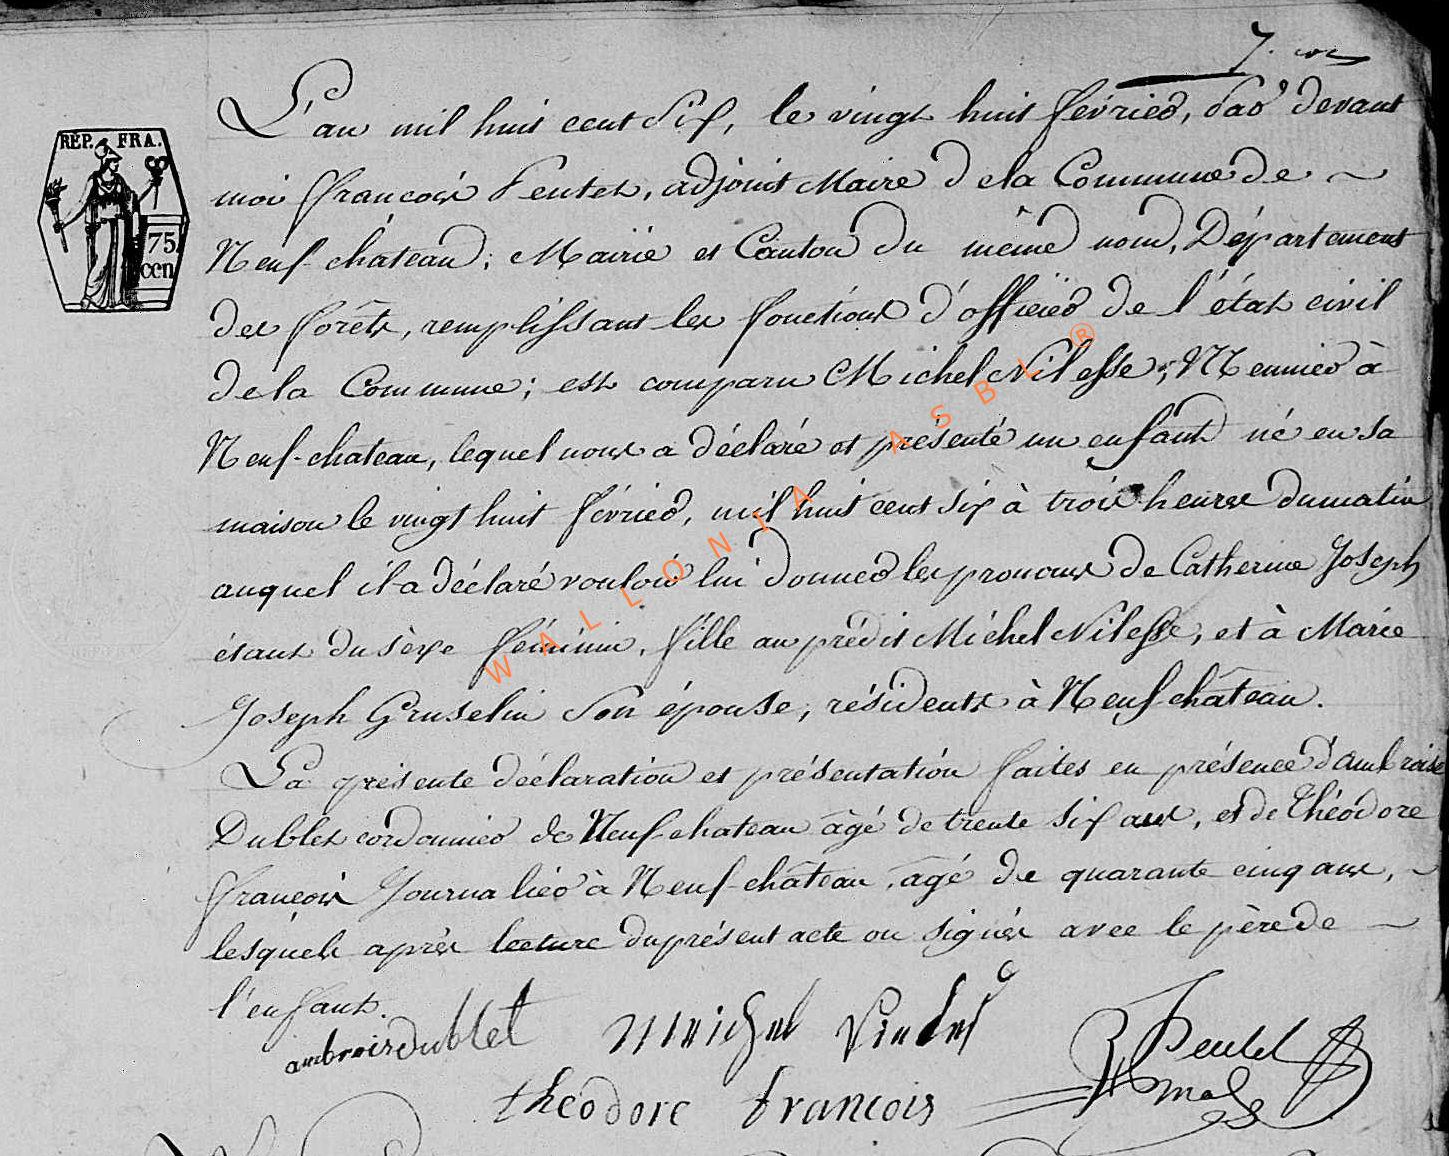 7.
RÉP. FRA.
75
cen
L'an mil huit cent Six, le vingt huit fevrier, par devant
moi françois Pentel, adjoint Maire de la Commune de ~
Neuf-château, Mairie et Canton du même nom, Département
des forêts, remplissant les fonctions d'officier de l'état civil
de la Commune; est comparu Michel Nilesse, Meunier à
Neuf-chateau, lequel nous a déclaré et présenté un enfant né en sa
maison le vingt huit février, mil huit cent six à trois heures du matin
auquel il a déclaré vouloir lui donner les prenoms de Catherine Joseph
étant du sèxe féminin, fille au prédit Michel Nilesse, et à Marie
Joseph Gruselin son épouse, résidents à Neufchâteau.
La présente déclaration et présentation faites en présence d'ambroise
Dublet cordonnier de Neuf-chateau âgé de trente six ans, et de Théodore
françois Journalier à Neuf-château, agé de quarante cinq ans, ~
lesquels après lecture du présent acte on signés avec le père de ~
l'enfant.
ambrois dublet michel
theodore francois
WALLONIA ASBL ®